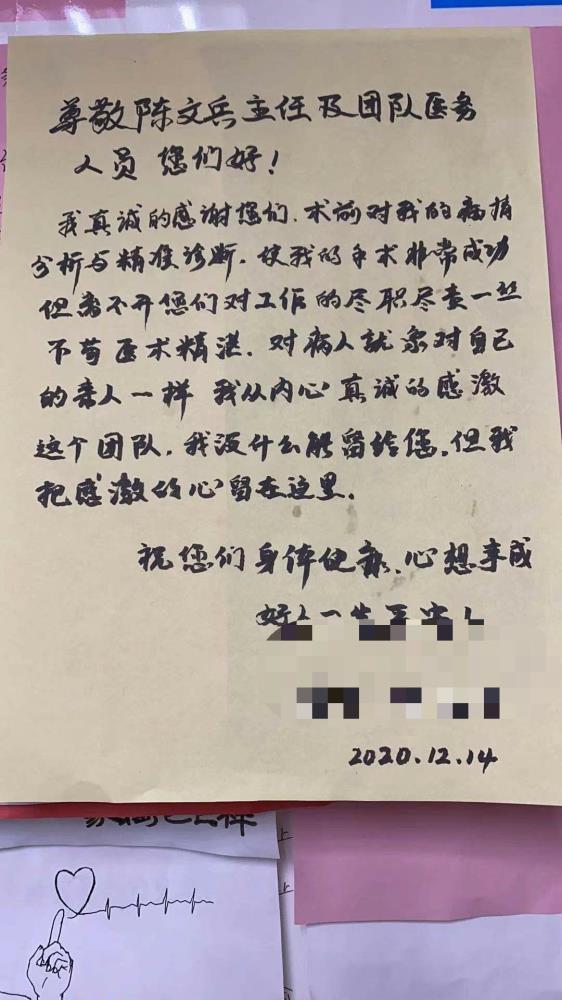 尊敬陈文兵主任及团队医务
人员 您们好!
我真诚的感谢您们、术前对我的病情
分析与精准诊断.使我的手术非常成功
但离不开您们对工作的尽职尽责一丝
不苟医术精湛.对病人就象对自己
的亲人一样 我从内心真诚的感激
这个团队.我没什么能留给您.但我
把感激的心留在这里.
祝您们身体健康、心想事成
好人一生平安!
2020.12.14
上
上